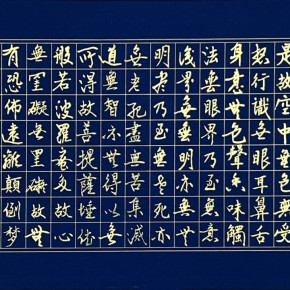 是故空中無色無受
想行識無眼耳鼻舌
身意無色聲香味觸
法無眼界乃至無意
識界無無明亦無無
明盡乃至無老死亦
無老死盡無苦集滅
道無智亦無得以無
所得故菩提薩埵依
般若波羅蜜多故心
無罣礙無罣礙故無
有恐怖遠離顛倒夢